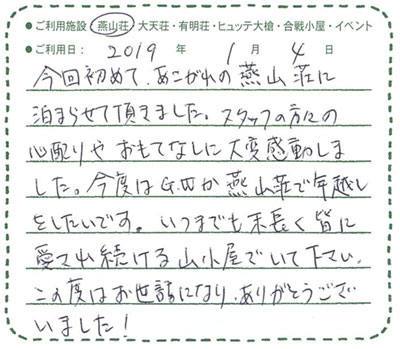 ●ご利用施設 燕山荘・大天荘・有明荘・ヒュッテ大槍・合戦小屋・イベント
●ご利用日： 2019 年 1 月 4 日
今回初めて、あこがれの燕山荘に
泊まらせて頂きました。スタッフの方々の
心配りやおもてなしに大変感動しま
した。今度はG.Wか燕山荘で年越し
をしたいです。いつまでも末長く皆に
愛され続ける山小屋でいて下さい。
この度はお世話になり、ありがとうござ
いました！